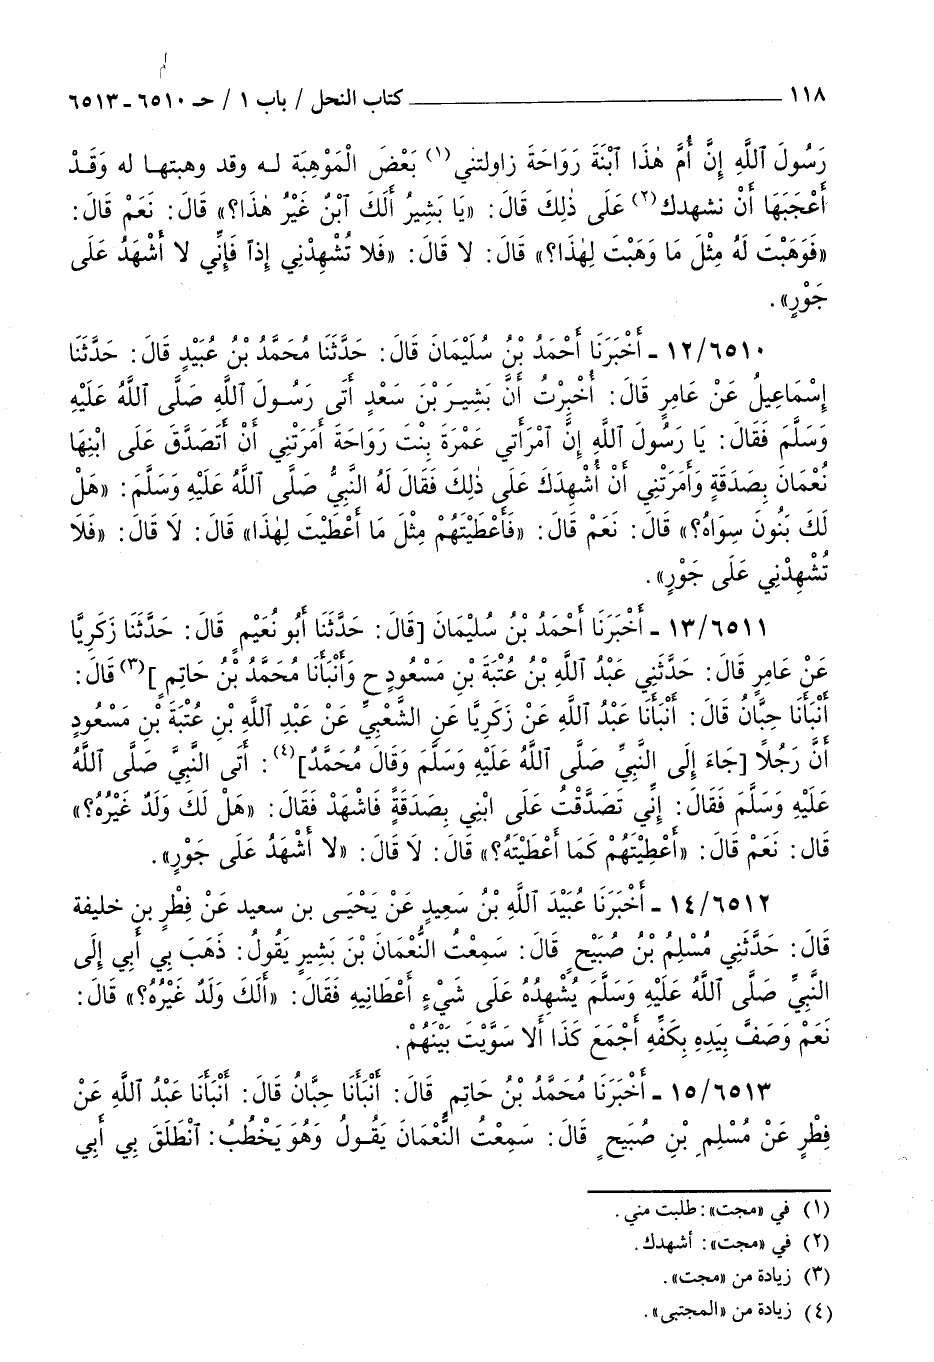 ١١٨ ــــــ كتاب النحل / باب ١ / حـ ٦٥١٠ ـ ٦٥١٣
رَسُولَ ٱللَّهِ إِنَّ أُمَّ هٰذَا ٱبْنَةَ رَوَاحَةَ زاولتني(١) بَعْضَ الْمَوْهِبَة لـه وقد وهبتهـا له وَقَـدْ
أَعْجَبَهَا أَنْ نشهدك(٢) عَلَى ذٰلِكَ قَالَ: «يَا بَشِيرُ أَلَكَ ٱبْنٌ غَيْرُ هٰذَا؟» قَالَ: نَعَمْ قَالَ:
«فَوَهَبْتَ لَهُ مِثْلَ مَا وَهَبْتَ لِهٰذَا؟» قَالَ: لا قَالَ: «فَلا تُشْهِدْنِي إِذاً فَإِنِّي لا أَشْهَدُ عَلَى
جَوْرٍ».
١٢/٦٥١٠ ـ أَخْبَرَنَا أَحْمَدُ بْنُ سُلَيْمَانَ قَالَ: حَدَّثَنَا مُحَمَّدُ بْنُ عُبَيْدٍ قَالَ: حَدَّثَنَا
إِسْمَاعِيلُ عَنْ عَامِرٍ قَالَ: أُخْبِرْتُ أَنَّ بَشِيـرَ بْنَ سَعْدٍ أَتَى رَسُـولَ اللَّهِ صَلَّى ٱللَّهُ عَلَيْهِ
وَسَلَّمَ فَقَالَ: يَا رَسُولَ ٱللَّهِ إِنَّ ٱمْرَأَتي عَمْرَةَ بِنْتَ رَوَاحَةَ أَمَرَتْنِي أَنْ أَتَصَدَّقَ عَلَى ابْنِهَا
نُعْمَانَ بِصَدَقَةٍ وَأَمَرَتْنِي أَنْ أُشْهِدَكَ عَلَى ذٰلِكَ فَقَالَ لَهُ النَّبِيُّ صَلَّى ٱللَّهُ عَلَيْهِ وَسَلَّمَ: «هَلْ
لَكَ بَنُونَ سِوَاهُ؟» قَالَ: نَعَمْ قَالَ: «فَأَعْطَيْتَهُمْ مِثْلَ مَا أَعْطَيْتَ لِهٰذَا» قَالَ: لَا قَالَ: «فَلَا
تُشْهِدْنِي عَلَى جَوْرٍ».
١٣/٦٥١١ ـ أَخْبَرَنَا أَحْمَدُ بْنُ سُلَيْمَانَ [قَالَ: حَدَّثَنَا أَبُو نُعَيْمٍ قَالَ: حَدَّثَنَا زَكَرِيَّا
عَنْ عَامِرٍ قَالَ: حَدَّثَنِي عَبْدُ اللَّهِ بْنُ عُتْبَةَ بْنِ مَسْعُودٍ ح وَأَنْبَأَنَا مُحَمَّدُ بْنُ حَاتِمٍ](٣) قَالَ:
أَنْبَأَنَا حِبَّانُ قَالَ: أَنْبَأَنَا عَبْدُ اللَّهِ عَنْ زَكَرِيَّا عَنِ الشَّعْبِيِّ عَنْ عَبْدِ اللَّهِ بْنِ عُتْبَةَ بْنِ مَسْعُودٍ
أَنَّ رَجُلًا [جَاءَ إِلَى النَّبِيِّ صَلَّى ٱللَّهُ عَلَيْهِ وَسَلَّمَ وَقَالَ مُحَمَّدٌ](٤): أَتَى النَّبِيَّ صَلَّى ٱللَّهُ
عَلَيْهِ وَسَلَّمَ فَقَالَ: إِنِّي تَصَدَّقْتُ عَلَى ابْنِي بِصَدَقَةٍ فَاشْهَدْ فَقَالَ: «هَلْ لَكَ وَلَدٌ غَيْرُهُ؟»
قَالَ: نَعَمْ قَالَ: «أَعْطِيْتَهُمْ كَمَا أَعْطَيْتَهُ؟» قَالَ: لَا قَالَ: «لا أَشْهَدُ عَلَى جَوْرٍ».
١٤/٦٥١٢ ـ أَخْبَرَنَا عُبَيْدَ ٱللَّهِ بْنُ سَعِيدٍ عَنْ يَحْيَـى بن سعيد عَنْ فِطْرٍ بن خليفة
قَالَ: حَدَّثَنِي مُسْلِمُ بْنُ صُبَيْحٍ قَالَ: سَمِعْتُ النُّعْمَانَ بْنَ بَشِيرٍ يَقُولُ: ذَهَبَ بِي أَبِي إِلَى
النَّبِيِّ صَلَّى ٱللَّهُ عَلَيْهِ وَسَلَّمَ يُشْهِدُهُ عَلَى شَيْءٍ أَعْطَانِيهِ فَقَالَ: «أَلَكَ وَلَدٌ غَيْرُهُ؟» قَالَ:
نَعَمْ وَصَفَّ بِيَدِهِ بِكَفِّهِ أَجْمَعَ كَذَا أَلا سَوَّيْتَ بَيْنَهُمْ.
١٥/٦٥١٣ ـ أَخْبَرَنَا مُحَمَّدُ بْنُ حَاتِمٍ قَالَ: أَنْبَأَنَا حِبَّانُ قَالَ: أَنْبَأَنَا عَبْدُ اللَّهِ عَنْ
فِطْرٍ عَنْ مُسْلِمِ بْنِ صُبَيحٍ قَالَ: سَمِعْتُ النُّعْمَانَ يَقُولُ وَهُوَ يَخْطُبُ: ٱنْطَلَقَ بِي أَبِي
(١) في «مجت»: طلبت مني.
(٢) في «مجت»: أشهدك.
(٣) زيادة من «مجت».
(٤) زيادة من «المجتبى».